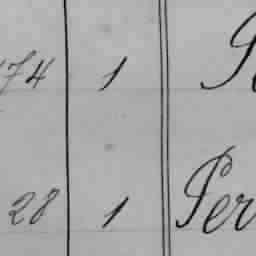 74 1
28 1 Per